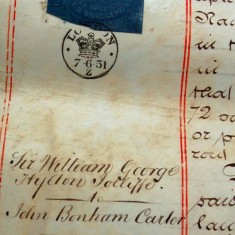 LONDON
7·6·51
Z
Sir William George
Hylton Jolliffe
to
John Bonham Carter
in t
in
that
72
or p